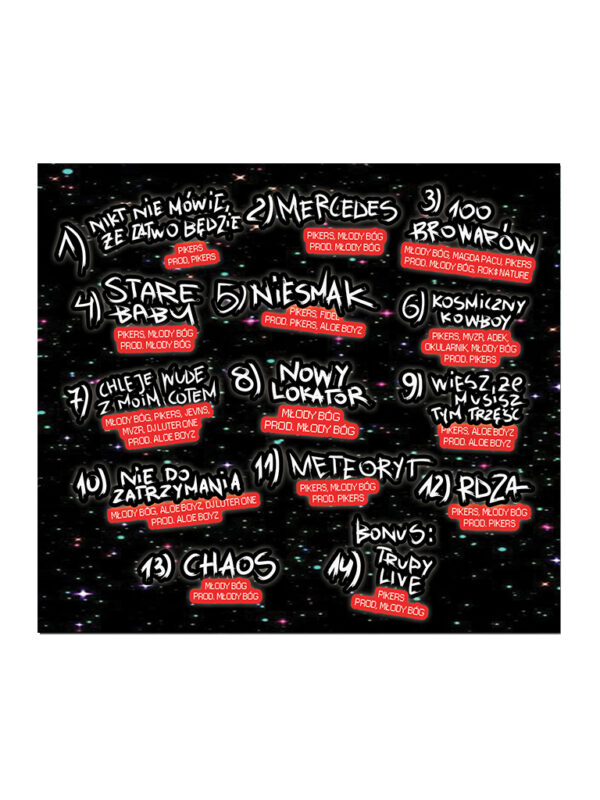 1) NIKT NIE MÓWIŁ,
ŻE ŁATWO BĘDZIE
PIKERS
PROD. PIKERS
2) MERCEDES
PIKERS, MŁODY BÓG
PROD. MŁODY BÓG
3) 100
BROWARÓW
MŁODY BÓG, MAGDA PACU, PIKERS
PROD. MŁODY BÓG, ROK$ NATURE
4) STARE
BABY
PIKERS, MŁODY BÓG
PROD. MŁODY BÓG
5) NIESMAK
PIKERS, FIDEL
PROD. PIKERS, ALOE BOYZ
6) KOSMICZNY
KOWBOY
PIKERS, MVZR, ADEK,
OKULARNIK, MŁODY BÓG
PROD. PIKERS
7) CHLEJE WUDE
Z MOIM COTEM
MŁODY BÓG, PIKERS, JEVNS,
MVZR, DJ LUTER ONE
PROD. ALOE BOYZ
8) NOWY
LOKATOR
MŁODY BÓG
PROD. MŁODY BÓG
9) WIESZ, ŻE
MUSISZ
TYM TRZĘŚĆ
PIKERS, ALOE BOYZ
PROD. ALOE BOYZ
10) NIE DO
ZATRZYMANIA
MŁODY BÓG, ALOE BOYZ, DJ LUTER ONE
PROD. ALOE BOYZ
11) METEORYT
PIKERS, MŁODY BÓG
PROD. PIKERS
12) RDZA
PIKERS, MŁODY BÓG
PROD. PIKERS
13) CHAOS
MŁODY BÓG
PROD. MŁODY BÓG
BONUS:
14) TRUPY
LIVE
PIKERS
PROD. MŁODY BÓG